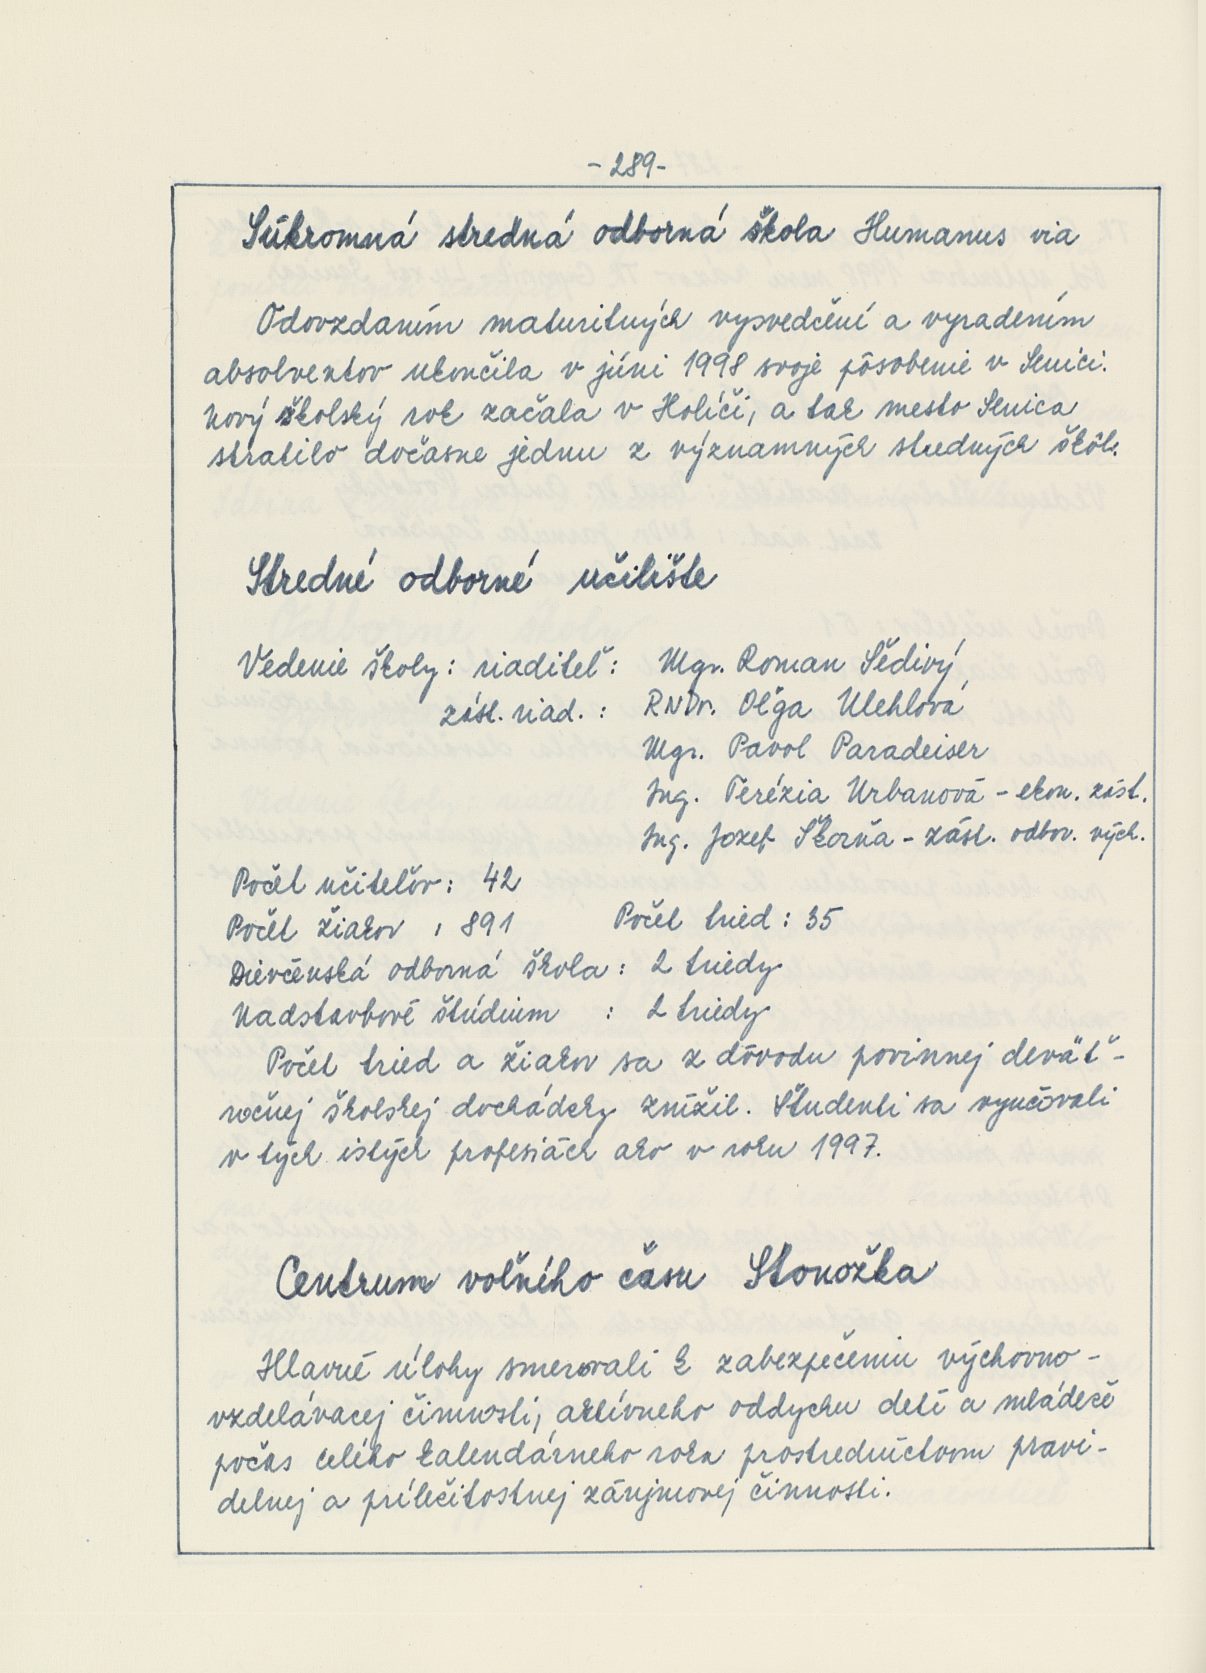 - 289 -
Súkromná stredná odborná škola Humanus via
Odovzdaním maturitných vysvedčení a vyradením
absolventov ukončila v júni 1998 svoje pôsobenie v Senici.
Nový školský rok začala v Holíči, a tak mesto Senica
stratilo dočasne jednu z významných stredných škôl.
Stredné odborné učilište
Vedenie školy: riaditeľ: Mgr. Roman Šedivý
zást. riad. : RNDr. Oľga Uehlová
Mgr. Pavol Paradeiser
Ing. Terézia Urbanová - ekon. zást.
Ing. Jozef Škorňa - zást. odbor. vých.
Počet učiteľov: 42
Počet žiakov : 891 Počet tried: 35
Dievčenská odborná škola: 2 triedy
Nadstavbové štúdium : 2 triedy
Počet tried a žiakov sa z dôvodu povinnej deväť-
ročnej školskej dochádzky znížil. Študenti sa vyučovali
v tých istých profesiách ako v roku 1997.
Centrum voľného času Stonožka
Hlavné úlohy smerovali k zabezpečeniu výchovno-
vzdelávacej činnosti, aktívneho oddychu detí a mládeže
počas celého kalendárneho roka prostredníctvom pravi-
delnej a príležitostnej záujmovej činnosti.